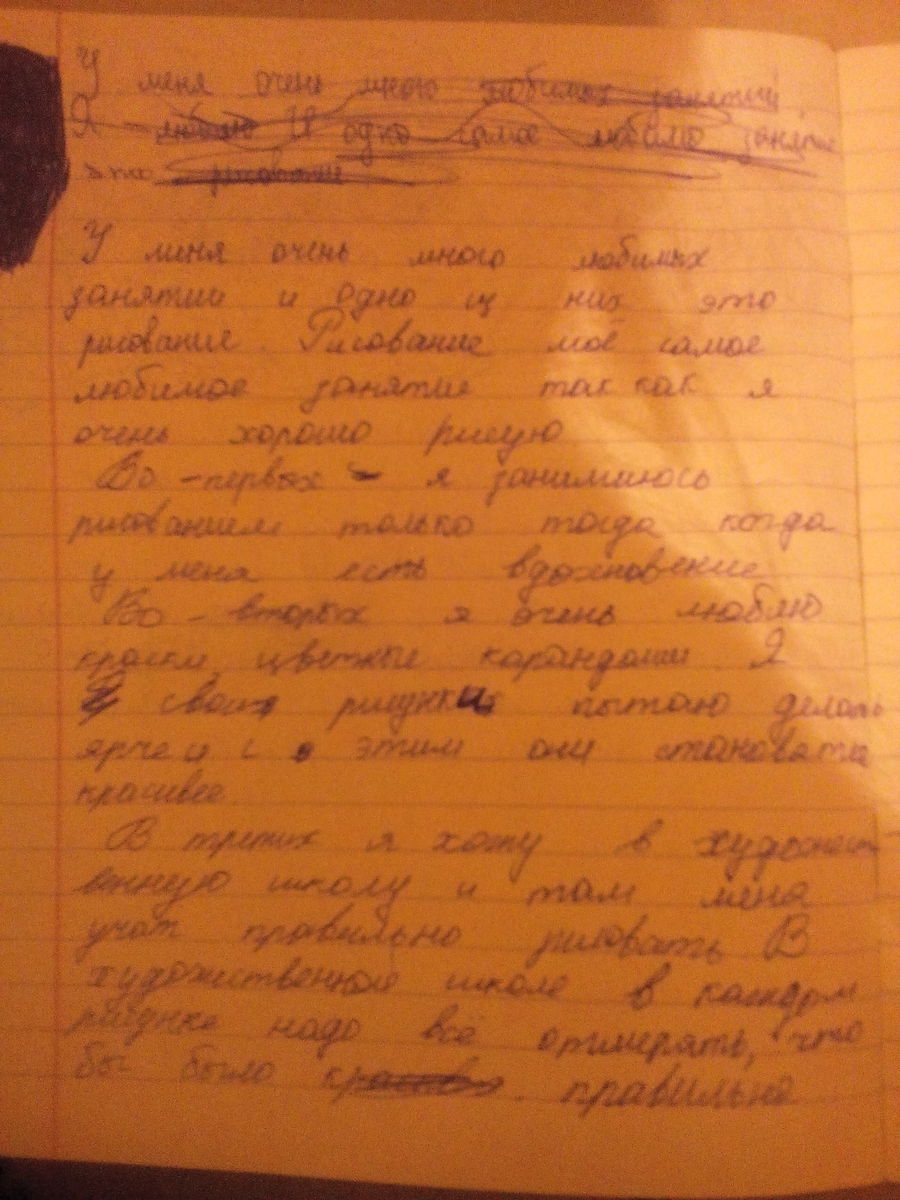 У меня очень много любимых занятий
Я люблю И одно самое любимо занятие
это рисование
У меня очень много любимых
занятии и одно из них это
рисование. Рисование моё самое
любимое занятие так как я
очень хорошо рисую
Во-первых - я занимаюсь
рисованием только тогда когда
у меня есть вдохновение
Во-вторых я очень люблю
краски цветные карандаши Я
свои рисунки пытаю делать
ярче и с этим они становятся
красивее
В третих я хожу в художест-
венную школу и там меня
учат правильно рисовать В
художественной школе в каждом
рисунке надо всё отмерять, что
бы было правильно